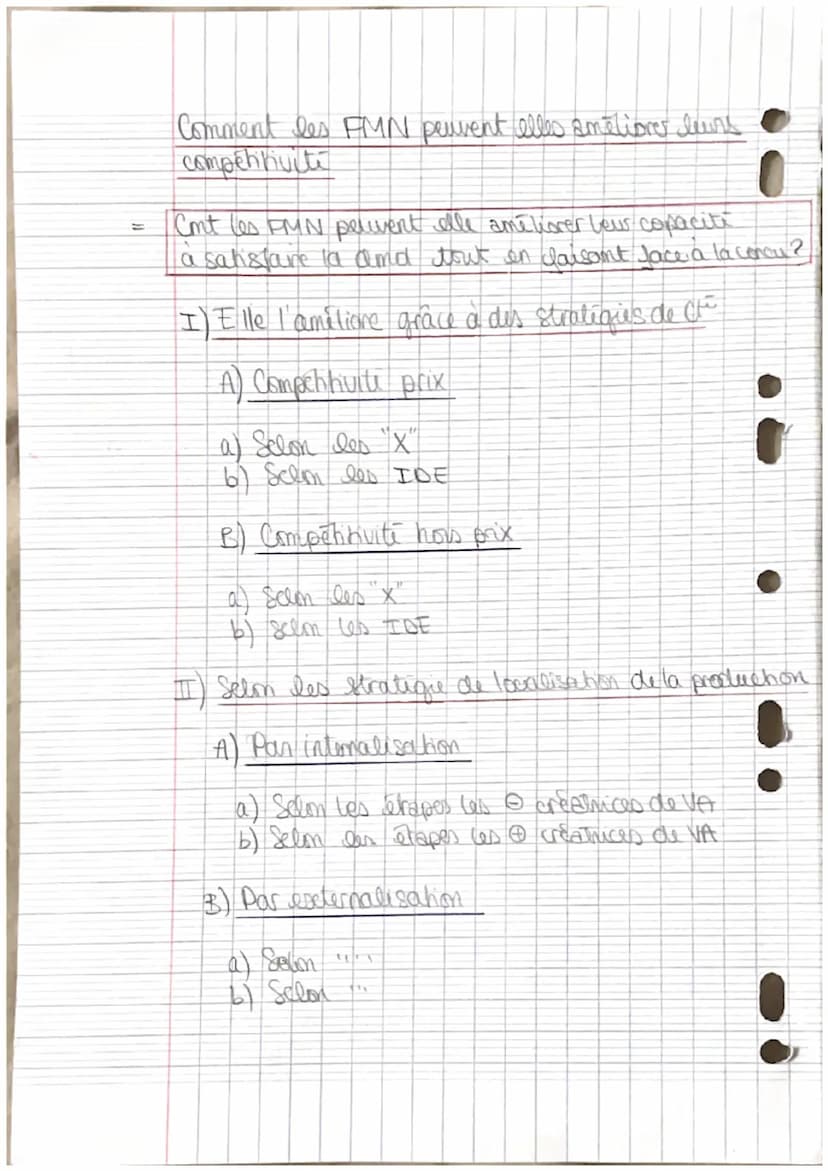 Comment les FMN peuvent elles améliorer leurs
compétitivité
= Cmt les FMN peuvent elle améliorer leur capacité
à satisfaire la dmd tout en faisant face à la concu ?
I) Elle l'améliore grâce à des stratégies de Cté
A) Compétitivité prix
a) Selon les "X"
b) Selon les IDE
B) Compétitivité hors prix
a) Selon les "X"
b) Selon les IDE
II) Selon les stratégie de localisation de la production
A) Par internalisation
a) Selon les étapes les ⊖ créatrices de VA
b) Selon les étapes les ⊕ créatrices de VA
B) Par externalisation
a) Selon " "
b) Selon " "